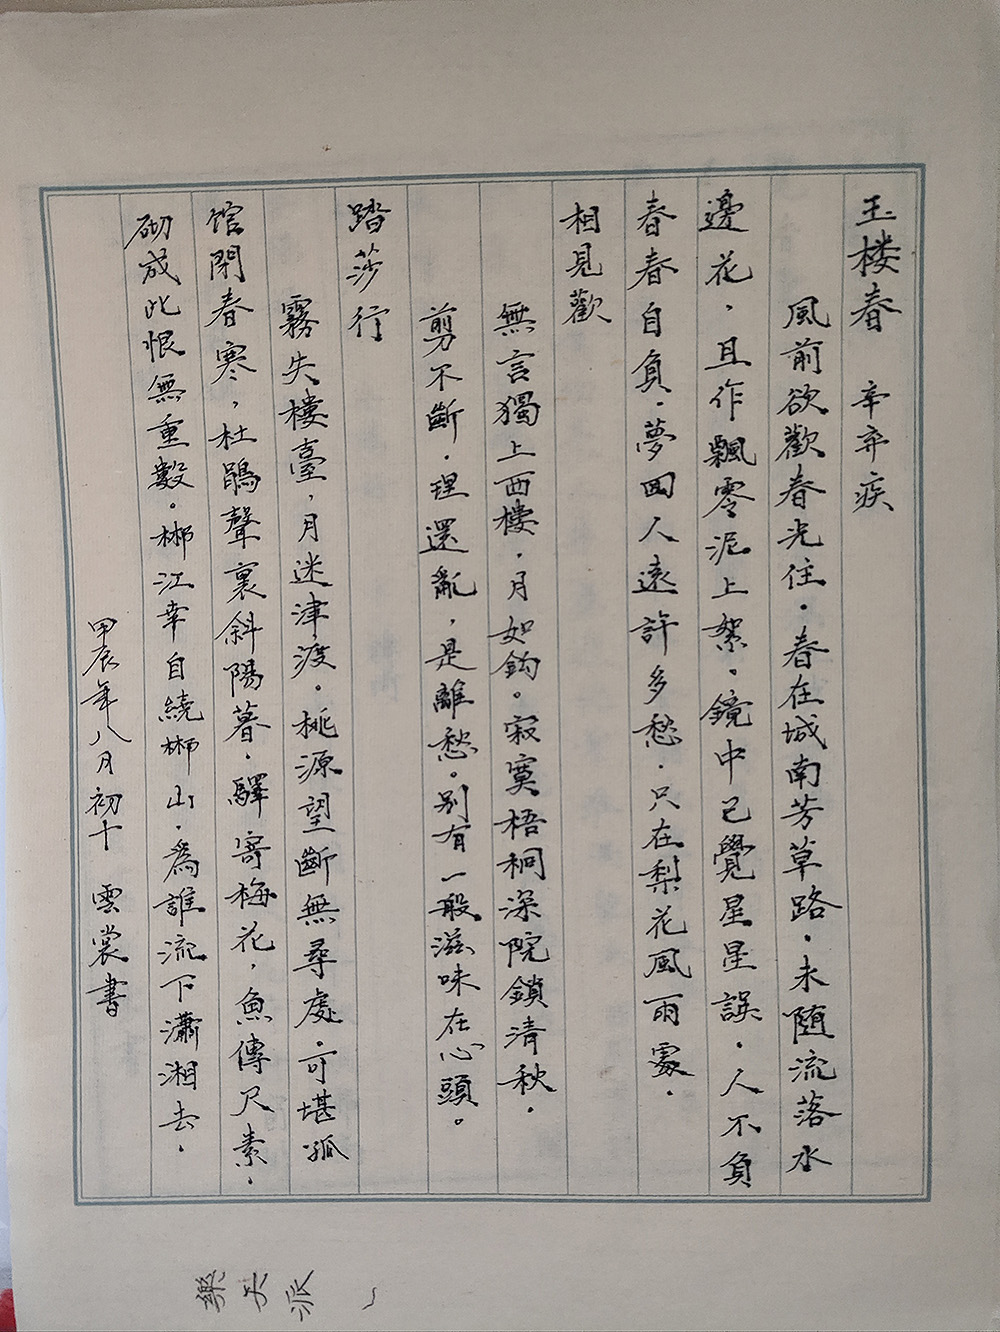 玉楼春 辛弃疾
風前欲歡春光住．春在城南芳草路．未随流落水
邊花，且作飄零泥上絮。鏡中已覺星星誤．人不負
春春自負．夢回人遠許多愁．只在梨花風雨處．
相見歡
無言獨上西樓．月如鈎。寂寞梧桐深院鎖清秋．
剪不斷．理還亂，是離愁。别有一般滋味在心頭。
踏莎行
霧失樓臺，月迷津渡。桃源望斷無尋處．可堪孤
馆閉春寒，杜鵑聲裏斜陽暮．驛寄梅花，魚傳尺素．
砌成此恨無重數。郴江幸自繞郴山．為誰流下瀟湘去．
甲辰年八月初十 雲裳書
樂天派